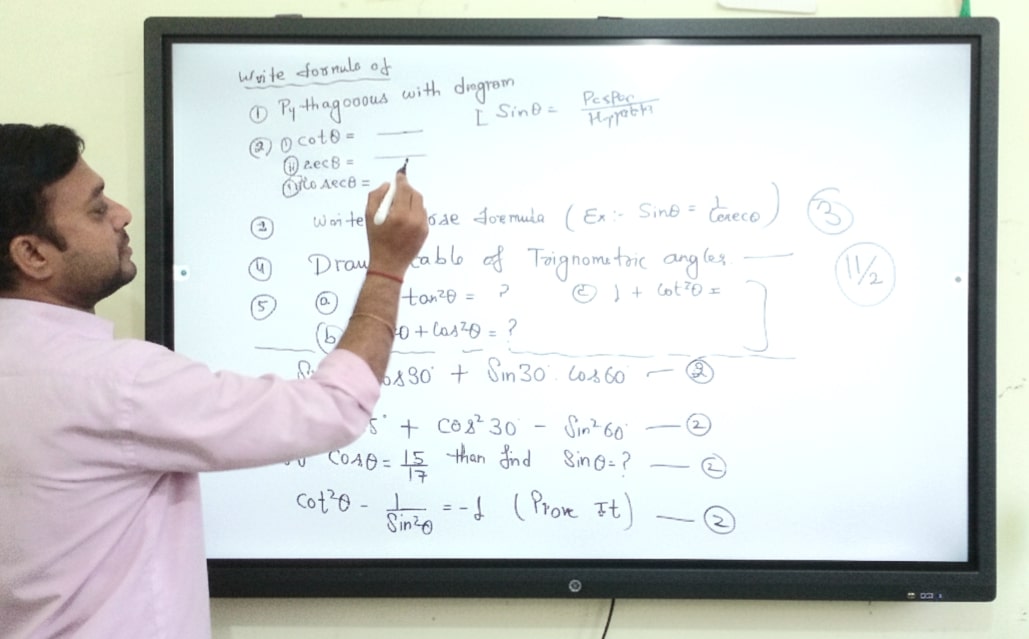 Write formula of
① Pythagoorus with diagram [ Sinθ = Perpen / Hypoten
② ① cotθ = ___
⑪ secθ = ___
cosecθ =
③ Write ose formula ( Ex :- Sinθ = 1/Cosecθ ) ③
④ Draw table of Trignometric angles —
11/2
⑤ ⓐ tan²θ = ? ⓒ 1 + cot²θ =
(b θ + Cos²θ = ?
os30° + Sin30°. Cos60° — ②
5° + cos²30° - Sin²60° — ②
Cosθ = 15/17 than find Sinθ = ? — ②
Cot²θ - 1/Sin²θ = -1 (Prove It) — ②